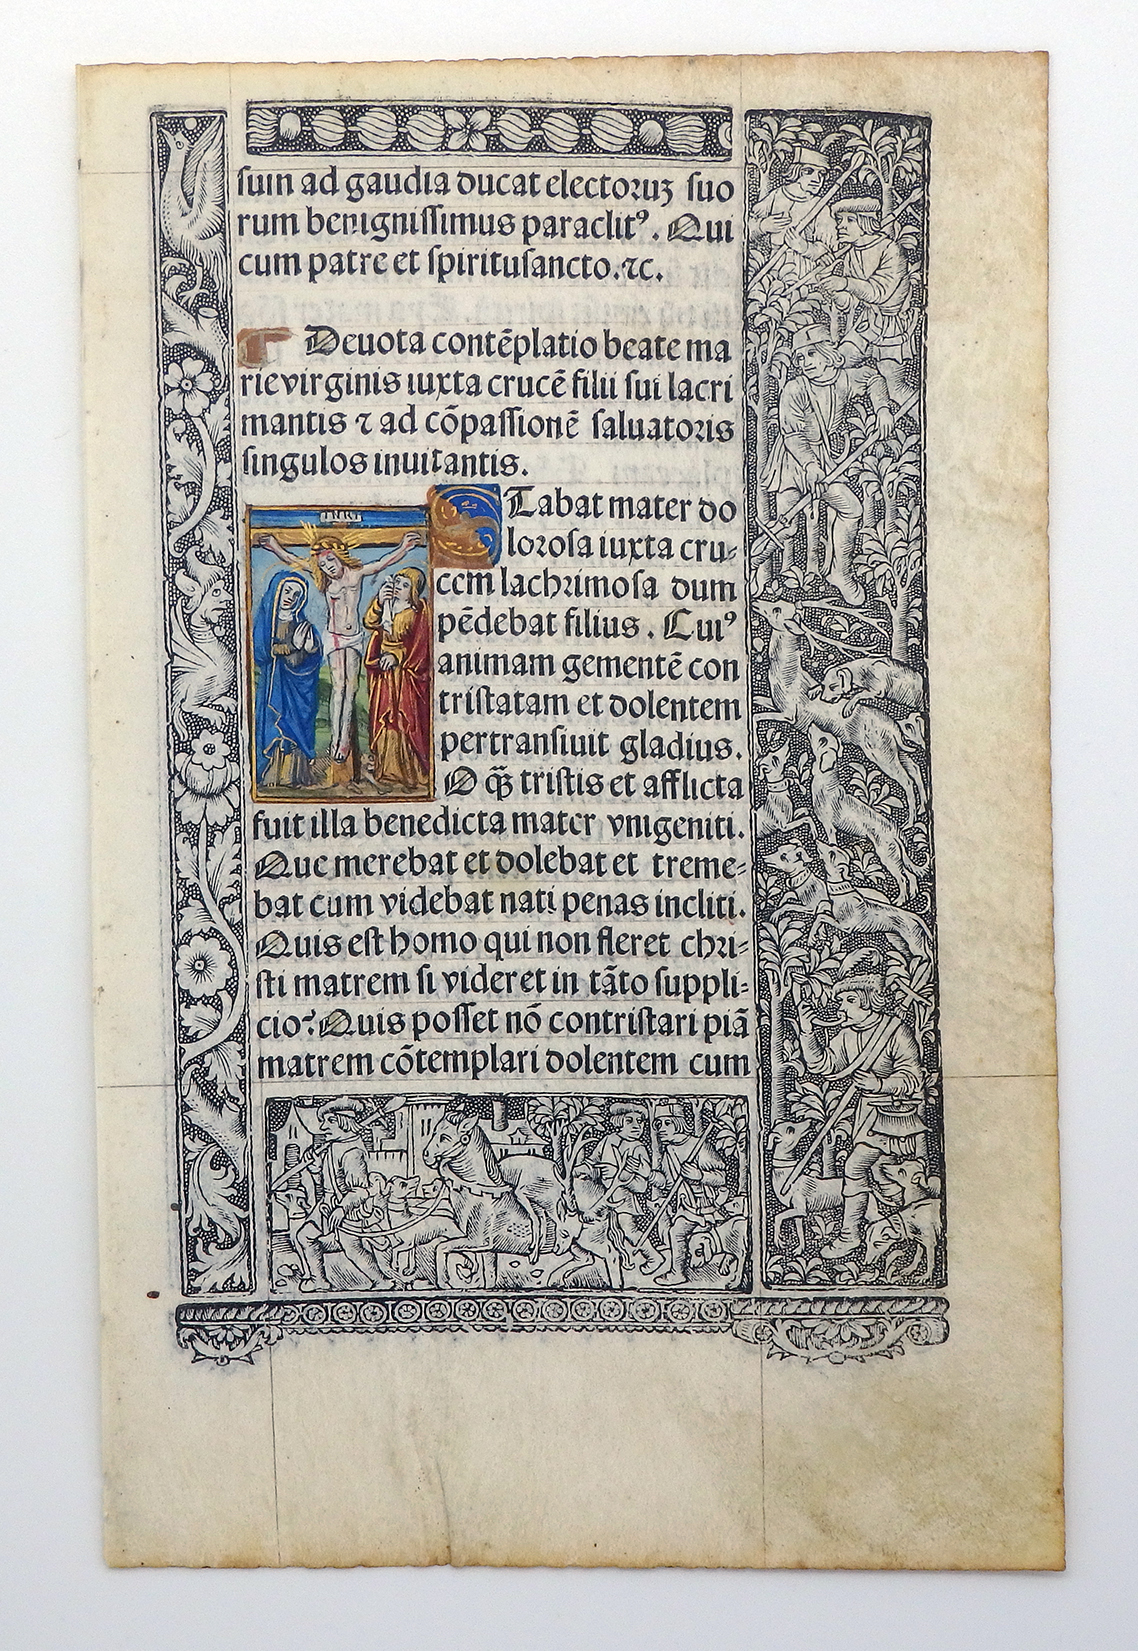 suin ad gaudia ducat electoruꝫ suo
rum benignissimus paraclitꝰ. Qui
cum patre et spiritusancto.⁊c.
Deuota contēplatio beate ma
rie virginis iuxta crucē filii sui lacri
mantis ⁊ ad cōpassionē saluatoris
singulos inuitantis.
STabat mater do
lorosa iuxta cru-
cem lachrimosa dum
pēdebat filius. Cuiꝰ
animam gementē con
tristatam et dolentem
pertransiuit gladius.
O qȝ̄ tristis et afflicta
fuit illa benedicta mater vnigeniti.
Que merebat et dolebat et treme-
bat cum videbat nati penas incliti.
Quis est homo qui non fleret chri-
sti matrem si videret in tāto suppli-
cio? Quis posset nō contristari piā
matrem cōtemplari dolentem cum